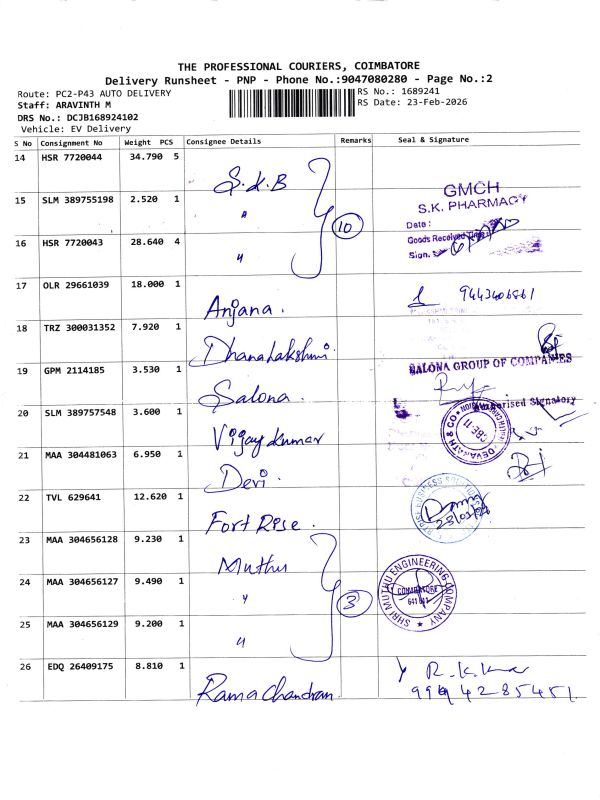 THE PROFESSIONAL COURIERS, COIMBATORE
Delivery Runsheet - PNP - Phone No.:9047080280 - Page No.:2
Route: PC2-P43 AUTO DELIVERY
RS No.: 1689241
Staff: ARAVINTH M
RS Date: 23-Feb-2026
DRS No.: DCJB168924102
Vehicle: EV Delivery
S No Consignment No Weight PCS Consignee Details Remarks Seal & Signature
14 HSR 7720044 34.790 5 S.K.B
15 SLM 389755198 2.520 1 "
16 HSR 7720043 28.640 4 "
10
GMCH
S.K. PHARMACY
Date :
Goods Received Time :
Sign.
17 OLR 29661039 18.000 1 Anjana . 9443406861
18 TRZ 300031352 7.920 1 Dhanalakshmi .
19 GPM 2114185 3.530 1 Salona .
SALONA GROUP OF COMPANIES
Authorised Signatory
20 SLM 389757548 3.600 1 Vijay Kumar
DEVARATH & CO
CBE 11
21 MAA 304481063 6.950 1 Devi .
22 TVL 629641 12.620 1 Fort Rise .
BUSINESS SOLUTIONS
23 MAA 304656128 9.230 1 Muthu
24 MAA 304656127 9.490 1 "
25 MAA 304656129 9.200 1 "
3
SHRI MUTHU ENGINEERING COMPANY
COIMBATORE
26 EDQ 26409175 8.810 1 Rama Chandran .
R.K.Kumar
9994285451